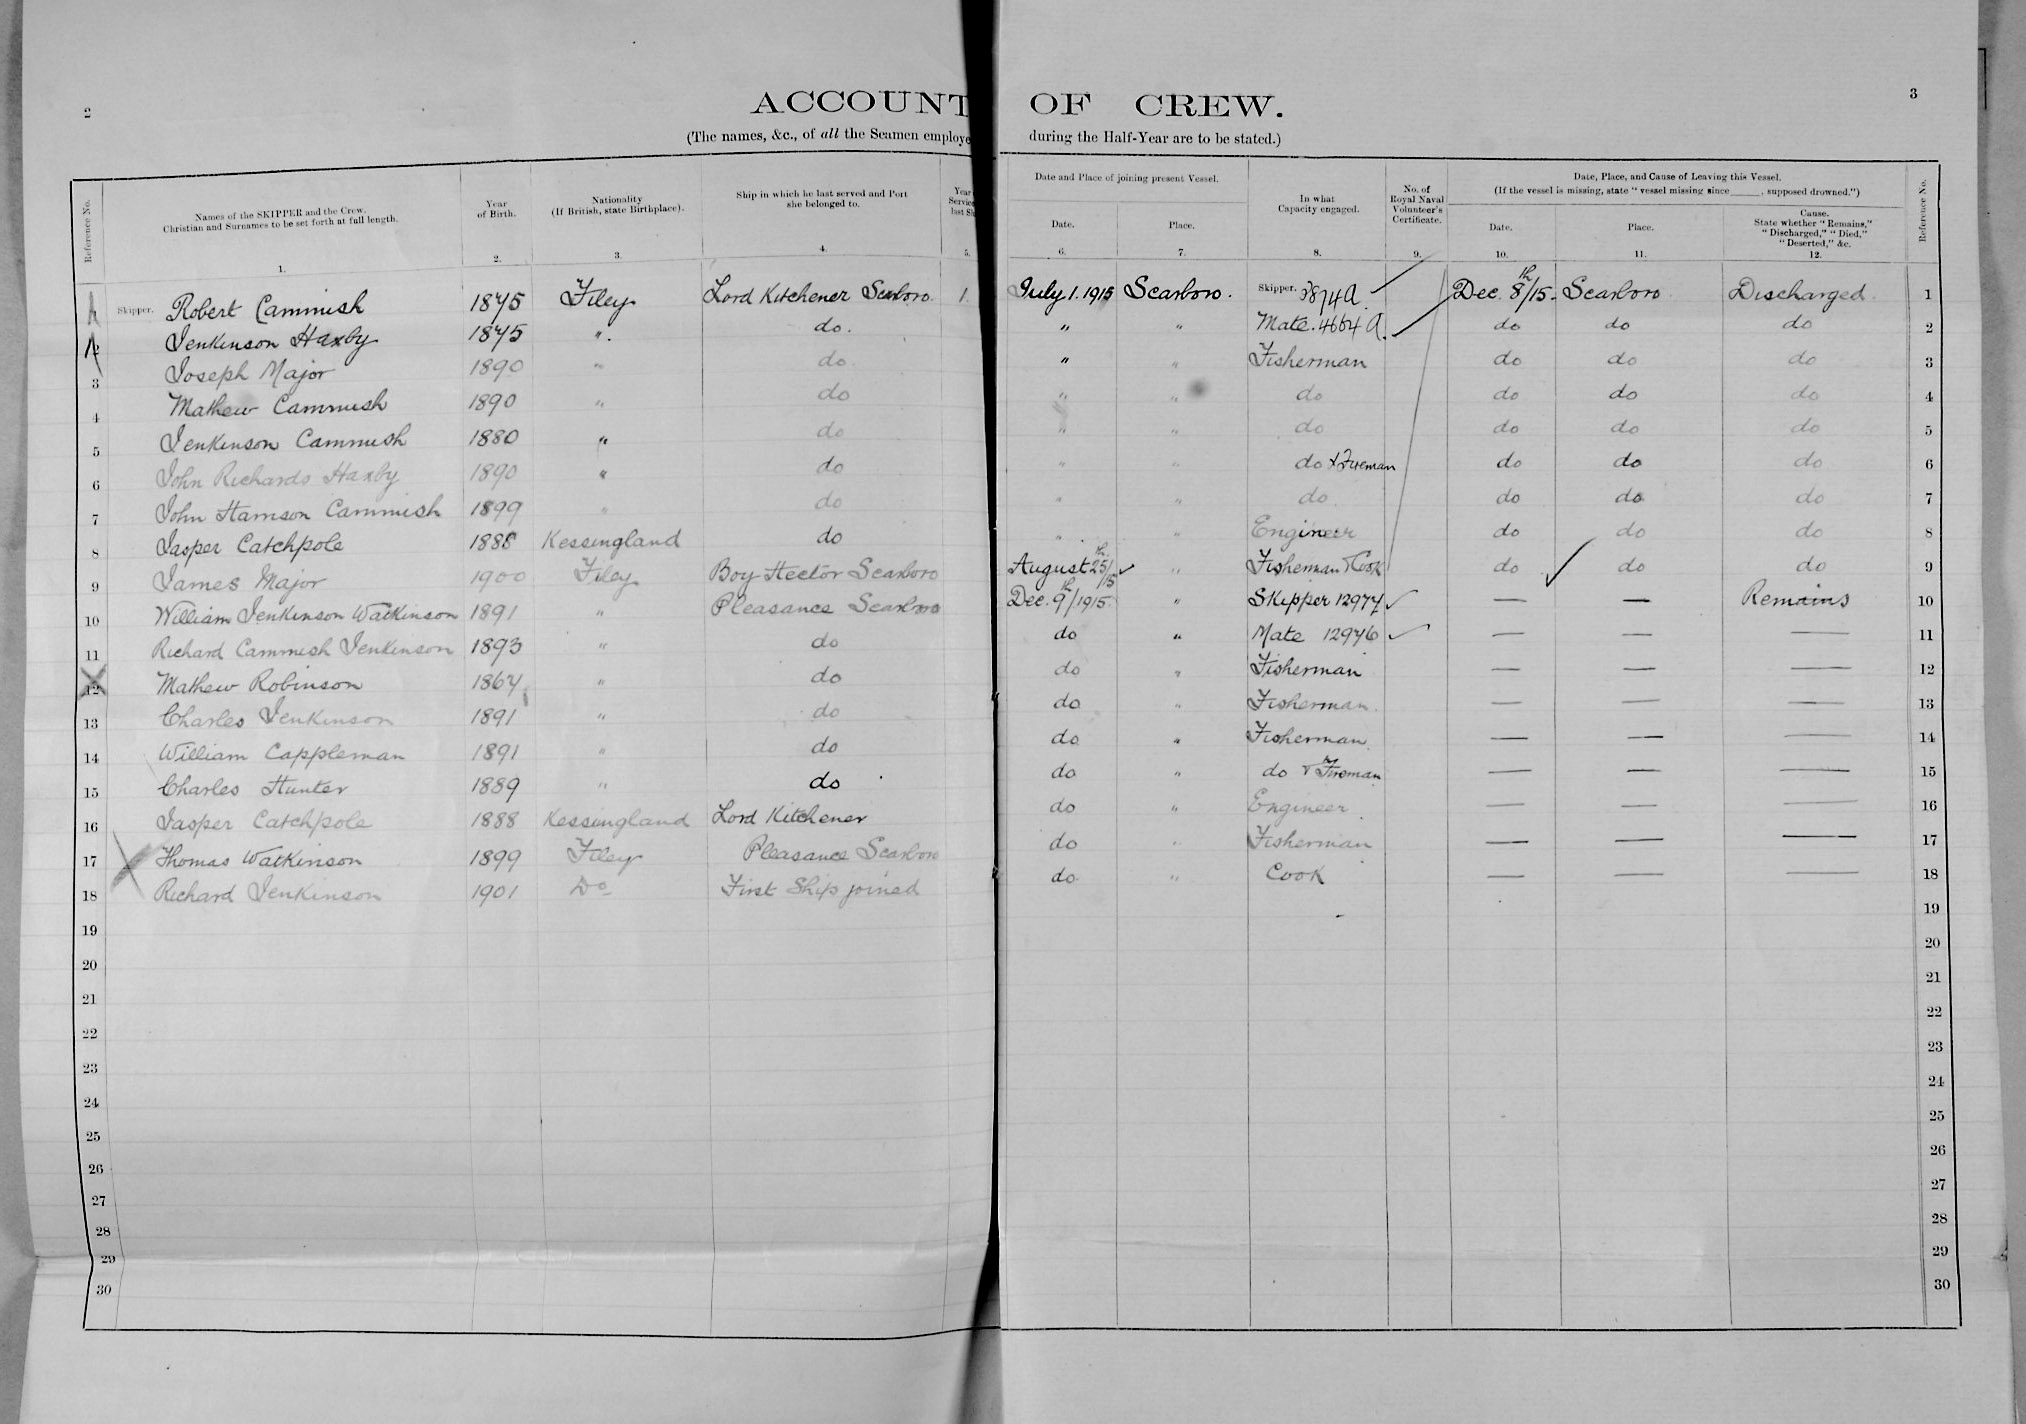 2
ACCOUNT OF CREW.
3
(The names, &c., of all the Seamen employe during the Half-Year are to be stated.)
Reference No.
Names of the SKIPPER and the Crew.
Christian and Surnames to be set forth at full length.
1.
Year
of Birth.
2.
Nationality
(If British, state Birthplace).
3.
Ship in which he last served and Port
she belonged to.
4.
Year
Service
last Sh
5.
Date and Place of joining present Vessel.
Date.
6.
Place.
7.
In what
Capacity engaged.
8.
No. of
Royal Naval
Volunteer's
Certificate.
9.
Date, Place, and Cause of Leaving this Vessel.
(If the vessel is missing, state "vessel missing since_____, supposed drowned.")
Date.
10.
Place.
11.
Cause.
State whether "Remains,"
"Discharged," "Died,"
"Deserted," &c.
12.
Reference No.
Skipper. Robert Cammish 1875 Filey Lord Kitchener Scarboro. 1. July 1. 1915 Scarboro. Skipper. 3874A. Dec. 8th/15. Scarboro Discharged. 1
2 Jenkinson Haxby 1875 ". do. " " Mate. 4664 A. do do do 2
3 Joseph Major 1890 " do. " " Fisherman do do do 3
4 Mathew Cammish 1890 " do " " do do do do 4
5 Jenkinson Cammish 1880 " do " " do do do do 5
6 John Richards Haxby 1890 " do " " do & Fireman do do do 6
7 John Harrison Cammish 1899 " do " " do. do do do 7
8 Jasper Catchpole 1888 Kessingland do " " Engineer do do do 8
9 James Major 1900 Filey Boy Hector Scarboro August 25th/15 " Fisherman & Cook do do do 9
10 William Jenkinson Watkinson 1891 " Pleasance Scarboro Dec. 9th/1915 " Skipper 12977 — — Remains 10
11 Richard Cammish Jenkinson 1893 " do do " Mate 12976 — — — 11
12 Mathew Robinson 1867 " do do " Fisherman — — — 12
13 Charles Jenkinson 1891 " do do " Fisherman. — — — 13
14 William Cappleman 1891 " do do " Fisherman. — — — 14
15 Charles Hunter 1889 " do do " do & Fireman — — — 15
16 Jasper Catchpole 1888 Kessingland Lord Kitchener do " Engineer — — — 16
17 Thomas Watkinson 1899 Filey Pleasance Scarboro do " Fisherman — — — 17
18 Richard Jenkinson 1901 Do First Ship joined do " Cook — — — 18
19 19
20 20
21 21
22 22
23 23
24 24
25 25
26 26
27 27
28 28
29 29
30 30